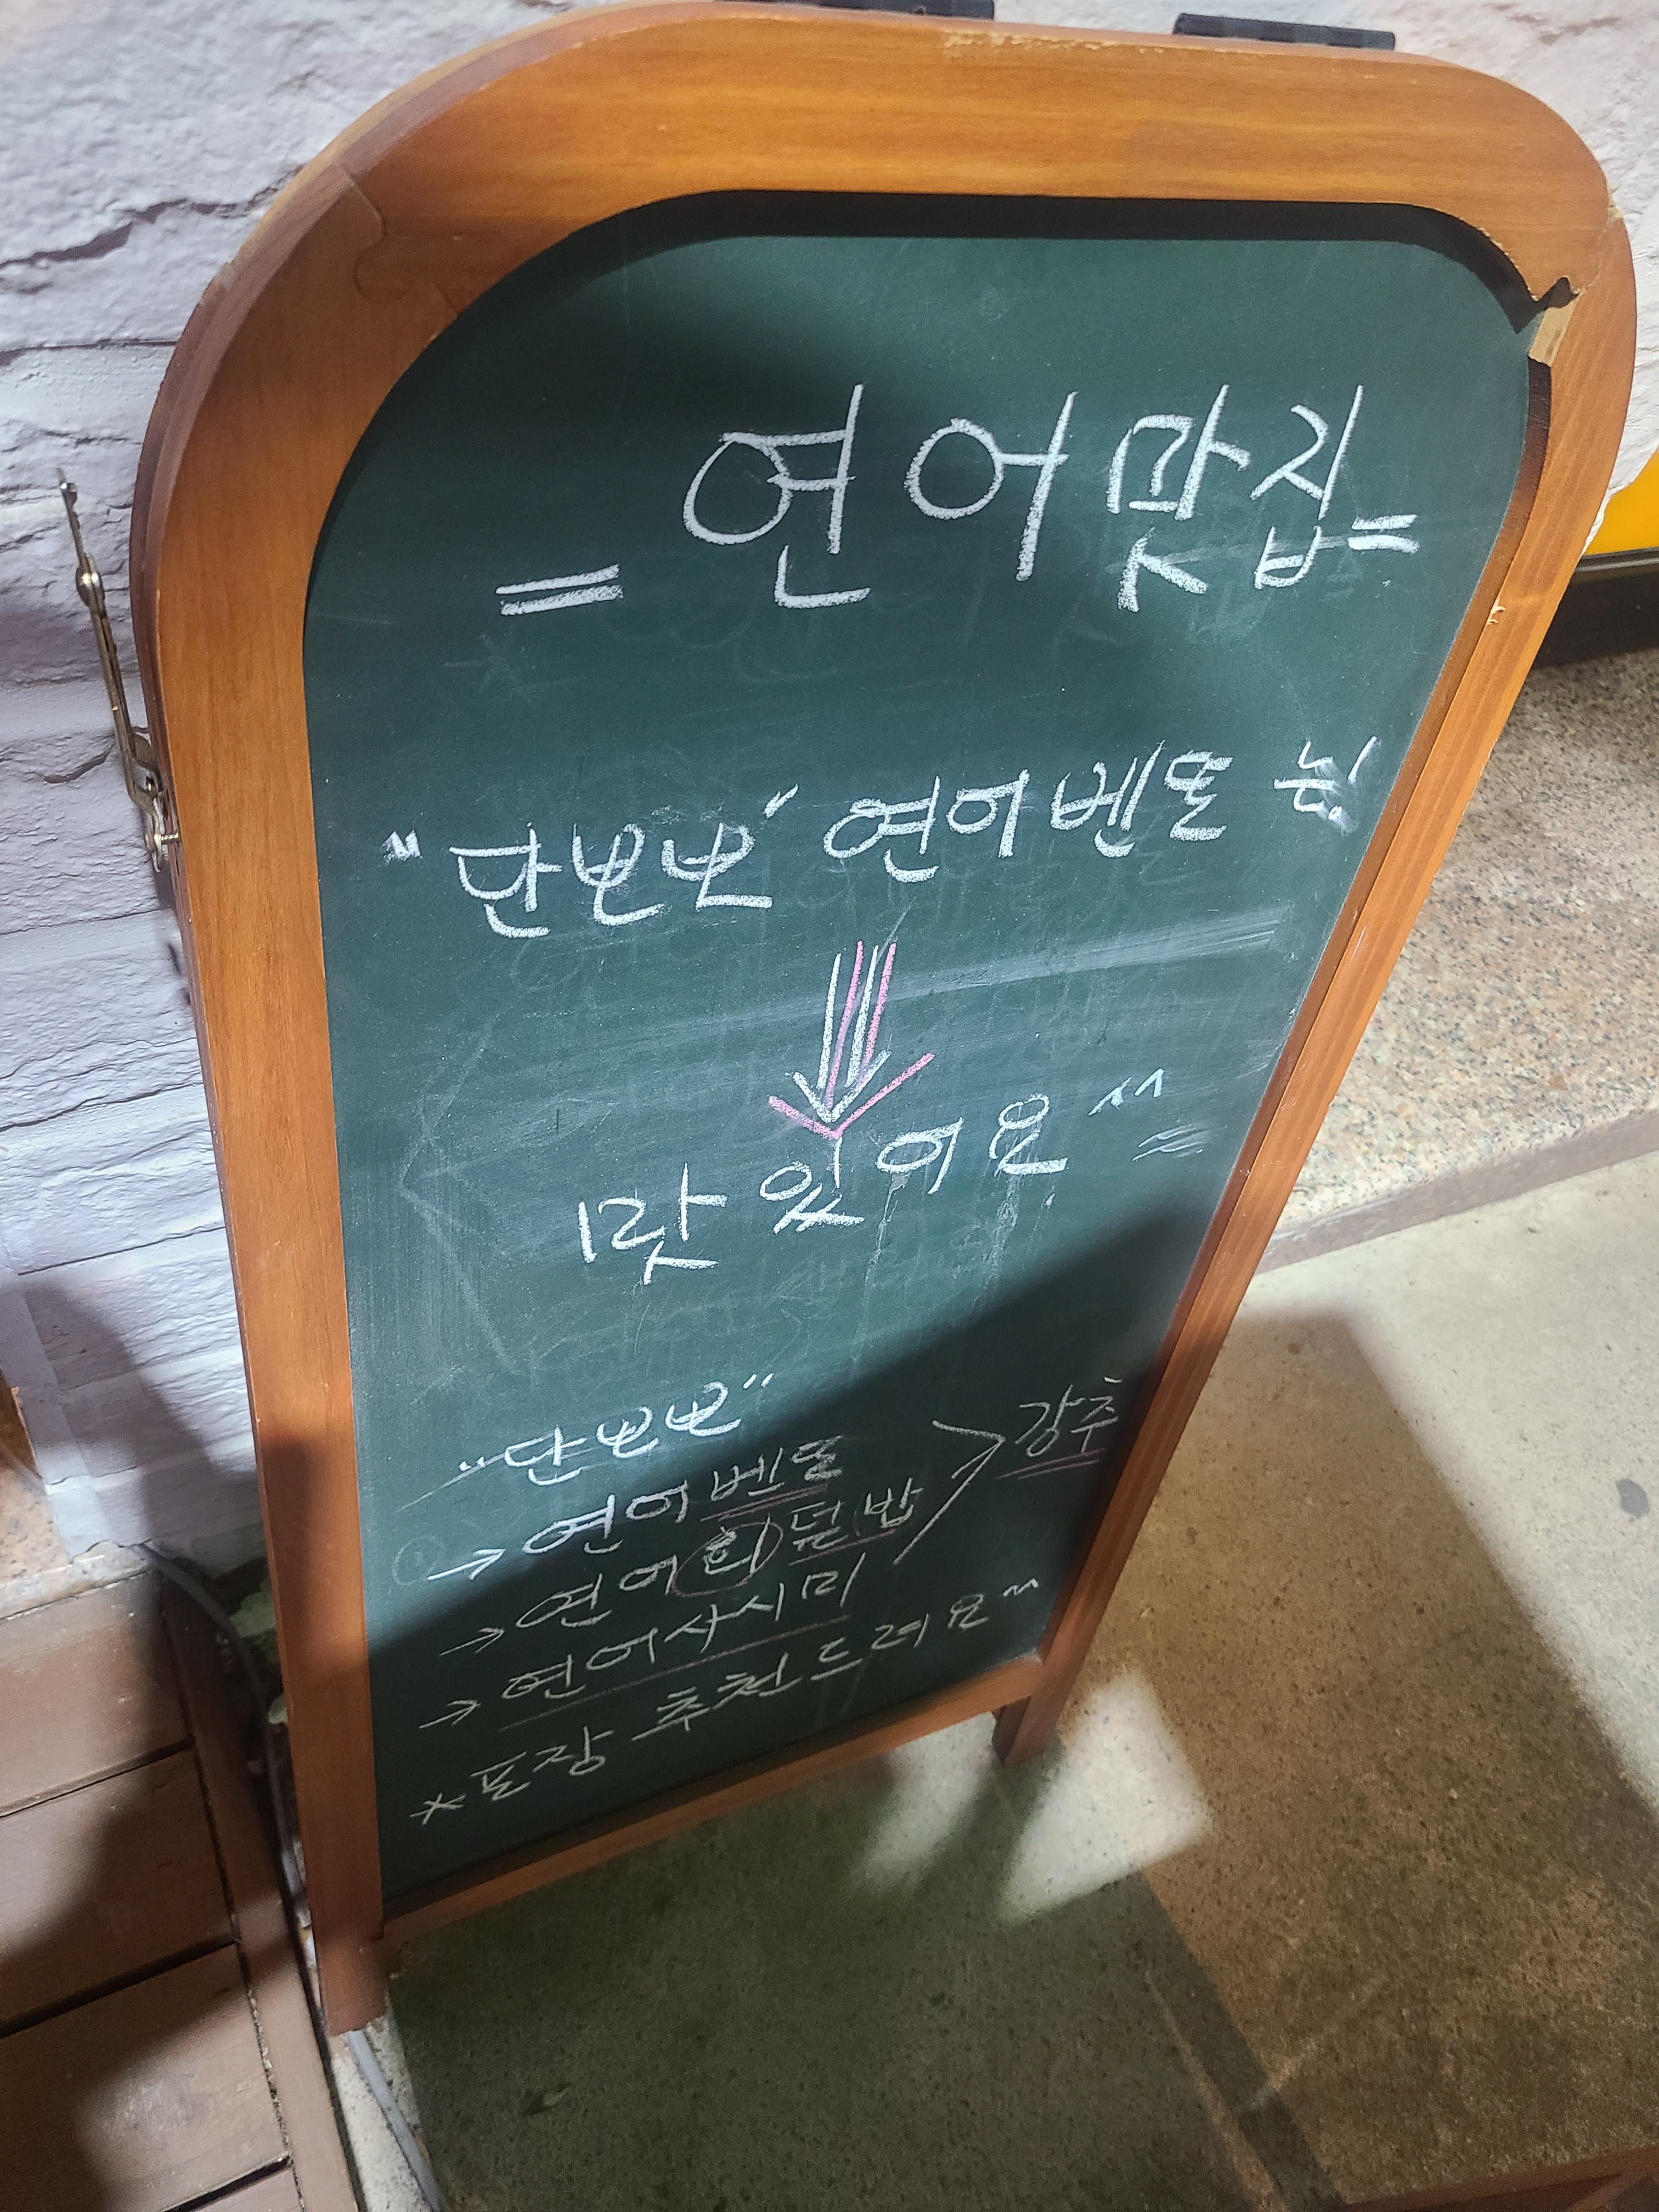 = 연어맛집 =
"단뽀뽀" 연어벤또 는
맛있어요^^
"단뽀뽀"
→ 연어벤또
→ 연어 덮밥 > 강추
→ 연어사시미
* 포장 추천드려요^^